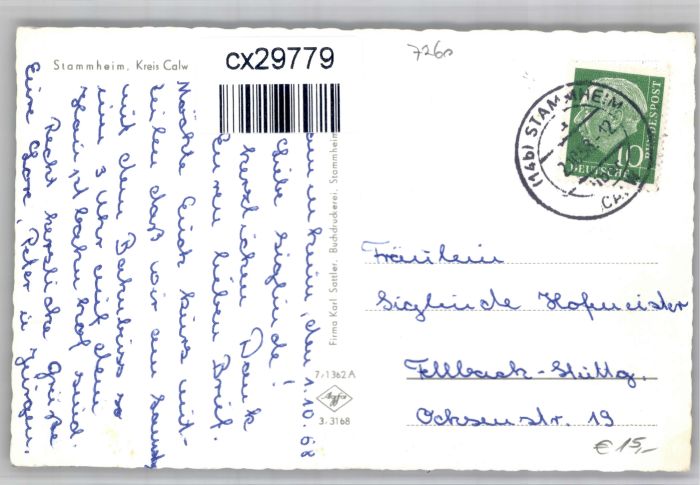 Stammheim, Kreis Calw
cx29779
7260
(14b) STAMMHEIM
CALW
10
DEUTSCHE
BUNDESPOST
den 1.10.68
Liebe Siglinde!
herzlichen Dank
Euren lieben Brief.
Möchte Euch kurz mit-
teilen daß wir am Samstg
mit dem Bahnbus so
um 3 Uhr mit dem
Recht herzliche Grüße
Eure Peter u. Jürgen.
Firma Karl Sattler, Buchdruckerei, Stammheim
7/1362 A
Agfa
3.3168
Fräulein
Siglinde Hofmeister
Fellbach-Stuttg.
Ochsenstr. 19
€ 15,-